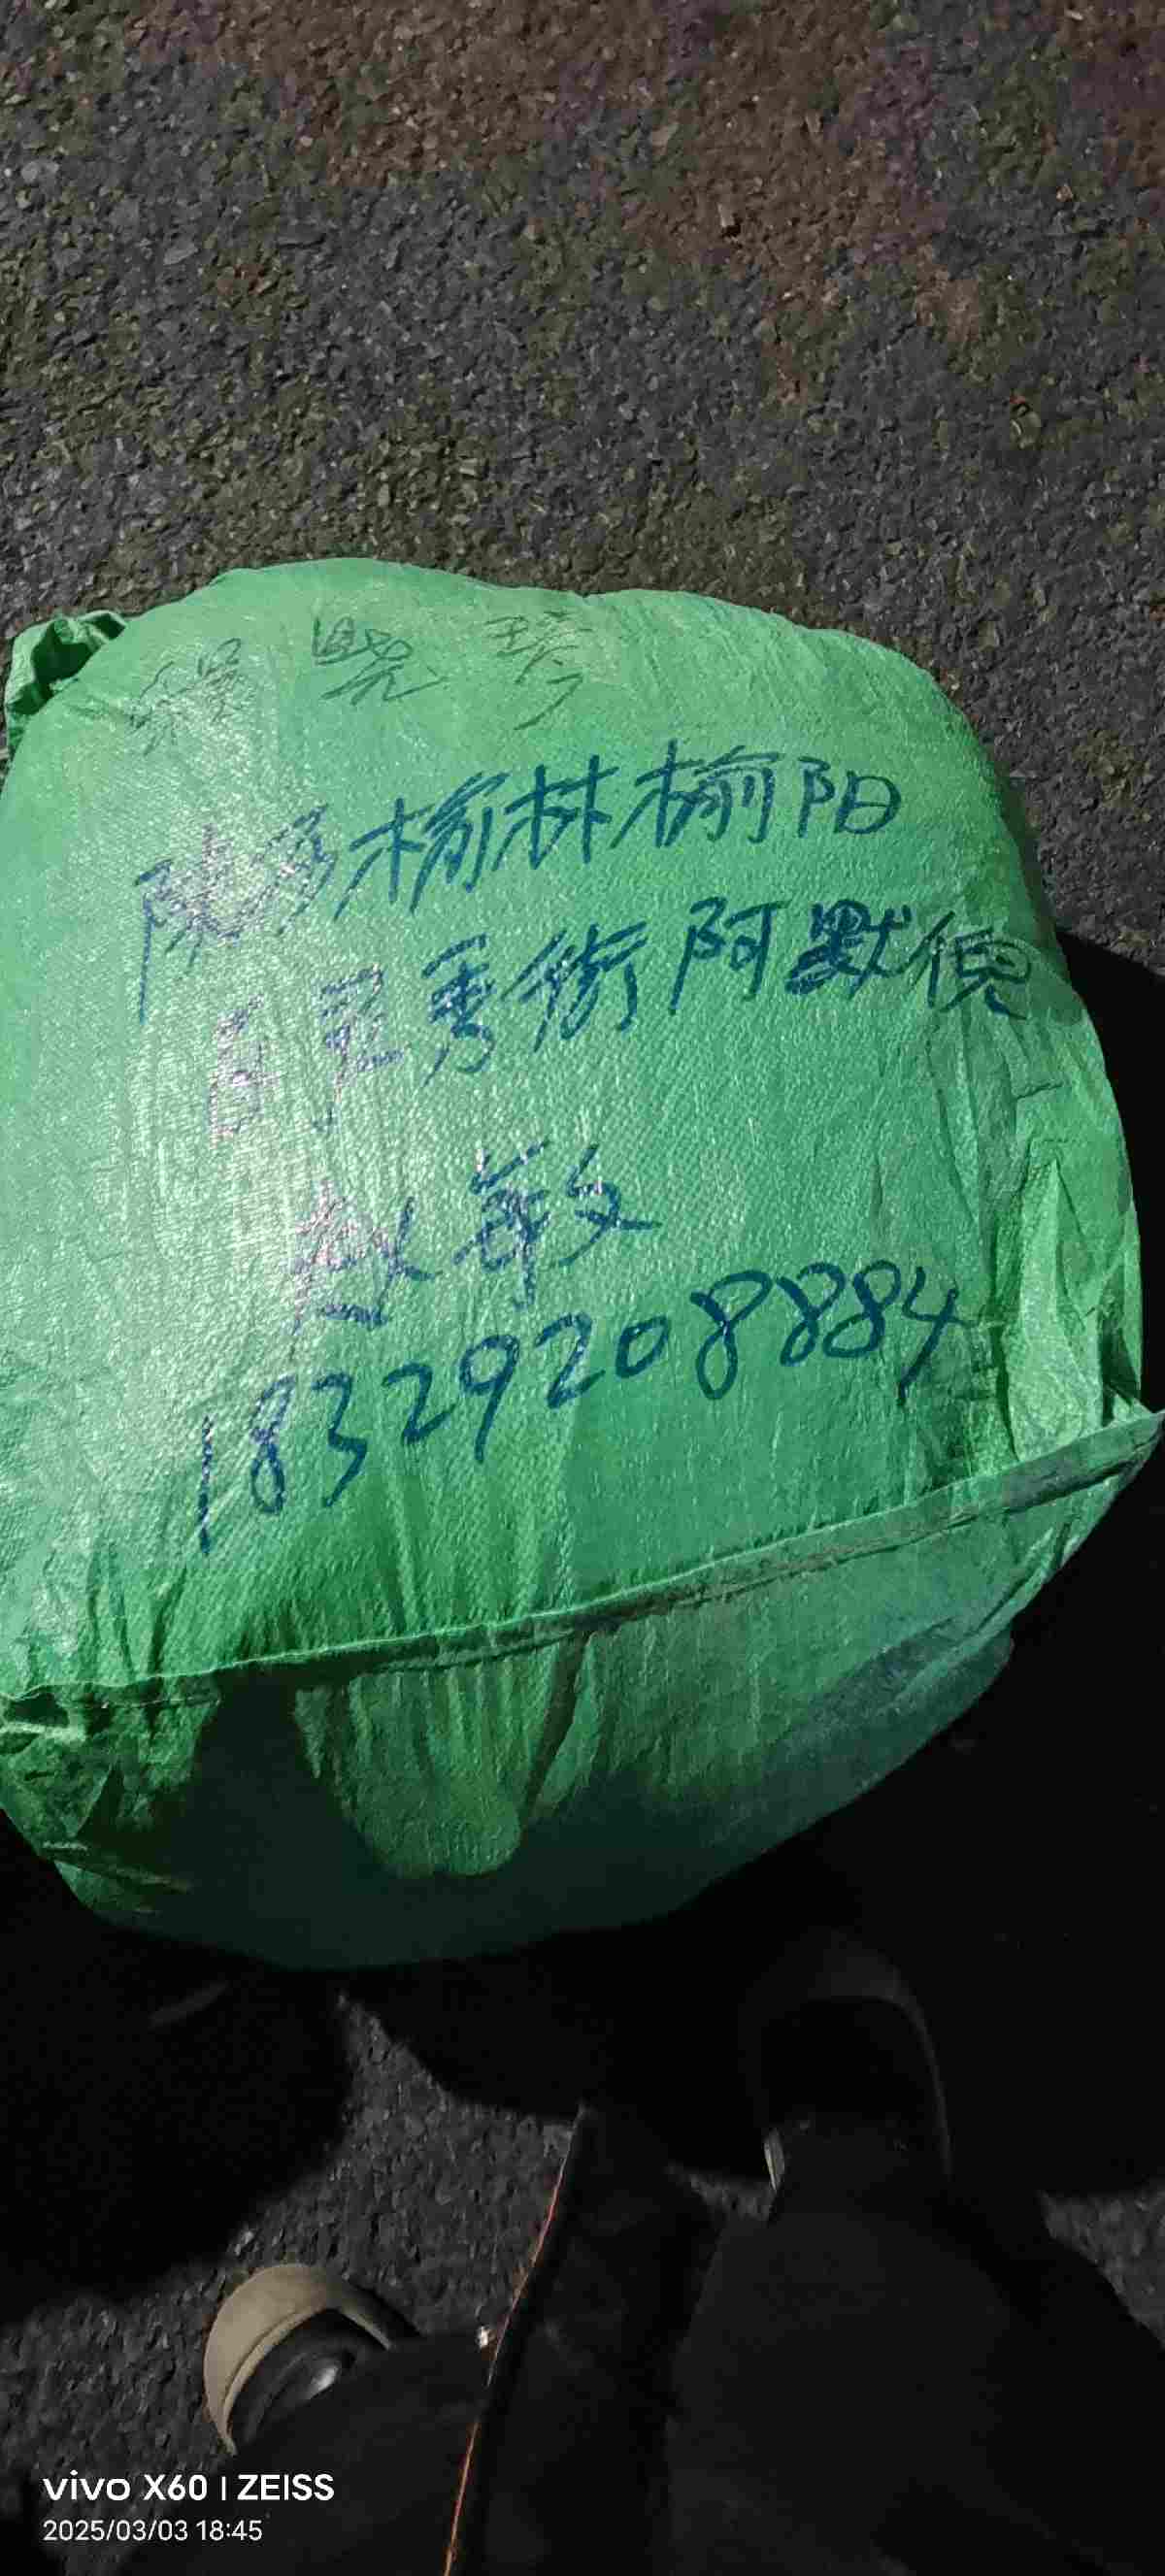 晓琴
陕西榆林榆阳
秀街阿默倪
赵敏
18329208884
vivo X60 | ZEISS
2025/03/03 18:45